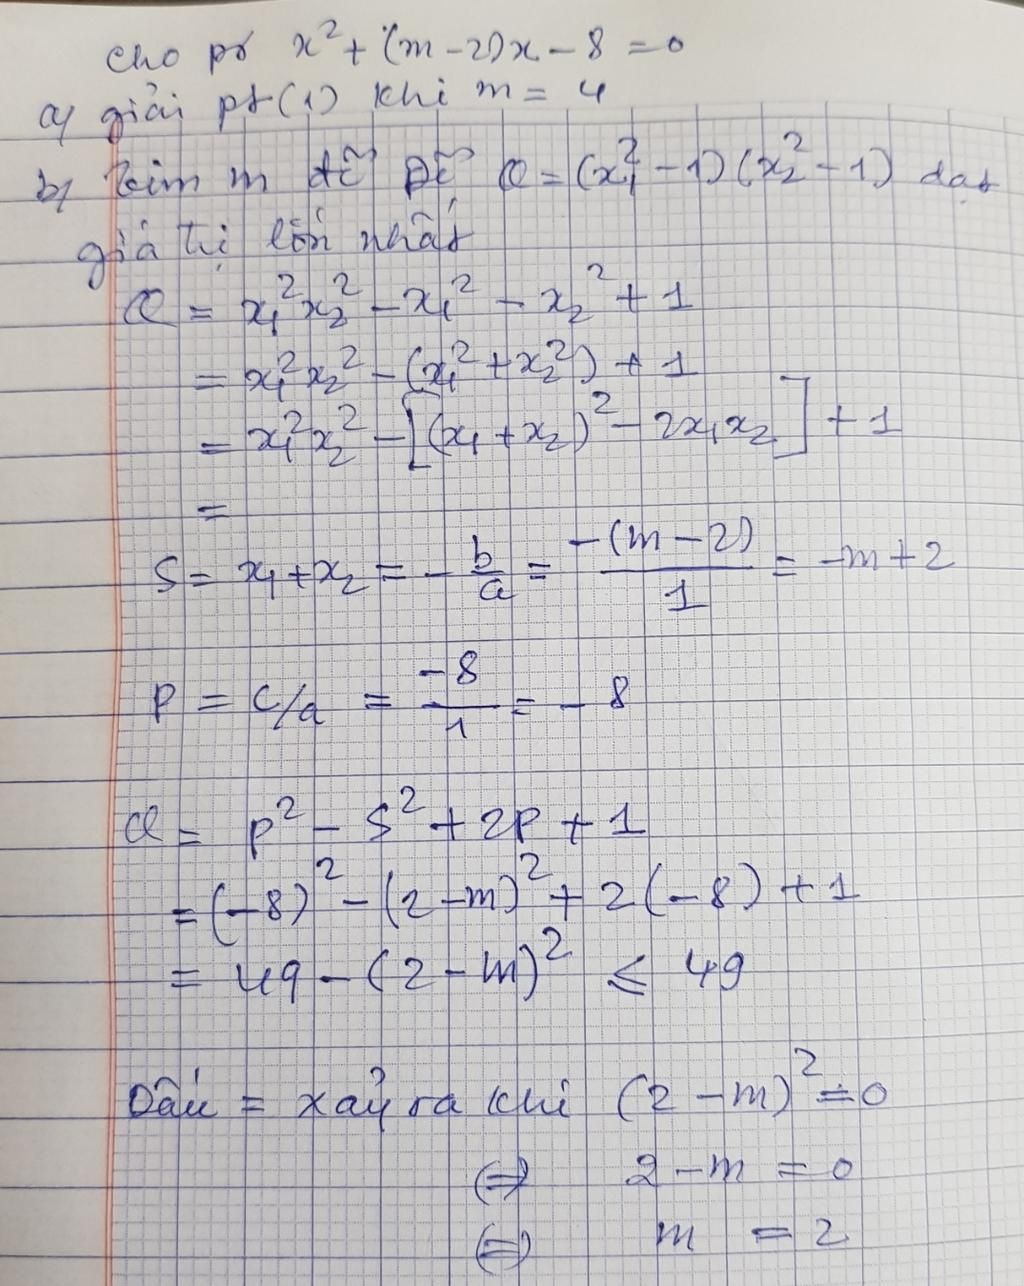 Cho pt x² + (m - 2)x - 8 = 0
a) giải pt (1) khi m = 4
b) Tìm m để Q = (x₁² - 1)(x₂² - 1) đạt
giá trị lớn nhất
Q = x₁²x₂² - x₁² - x₂² + 1
= x₁²x₂² - (x₁² + x₂²) + 1
= x₁²x₂² - [(x₁ + x₂)² - 2x₁x₂] + 1
=
S = x₁ + x₂ = - b/a = -(m - 2)/1 = -m + 2
P = c/a = -8/1 = - 8
Q = P² - S² + 2P + 1
= (-8)² - (2 - m)² + 2(-8) + 1
= 49 - (2 - m)² ≤ 49
Dấu = xảy ra khi (2 - m)² = 0
⇔ 2 - m = 0
⇔ m = 2